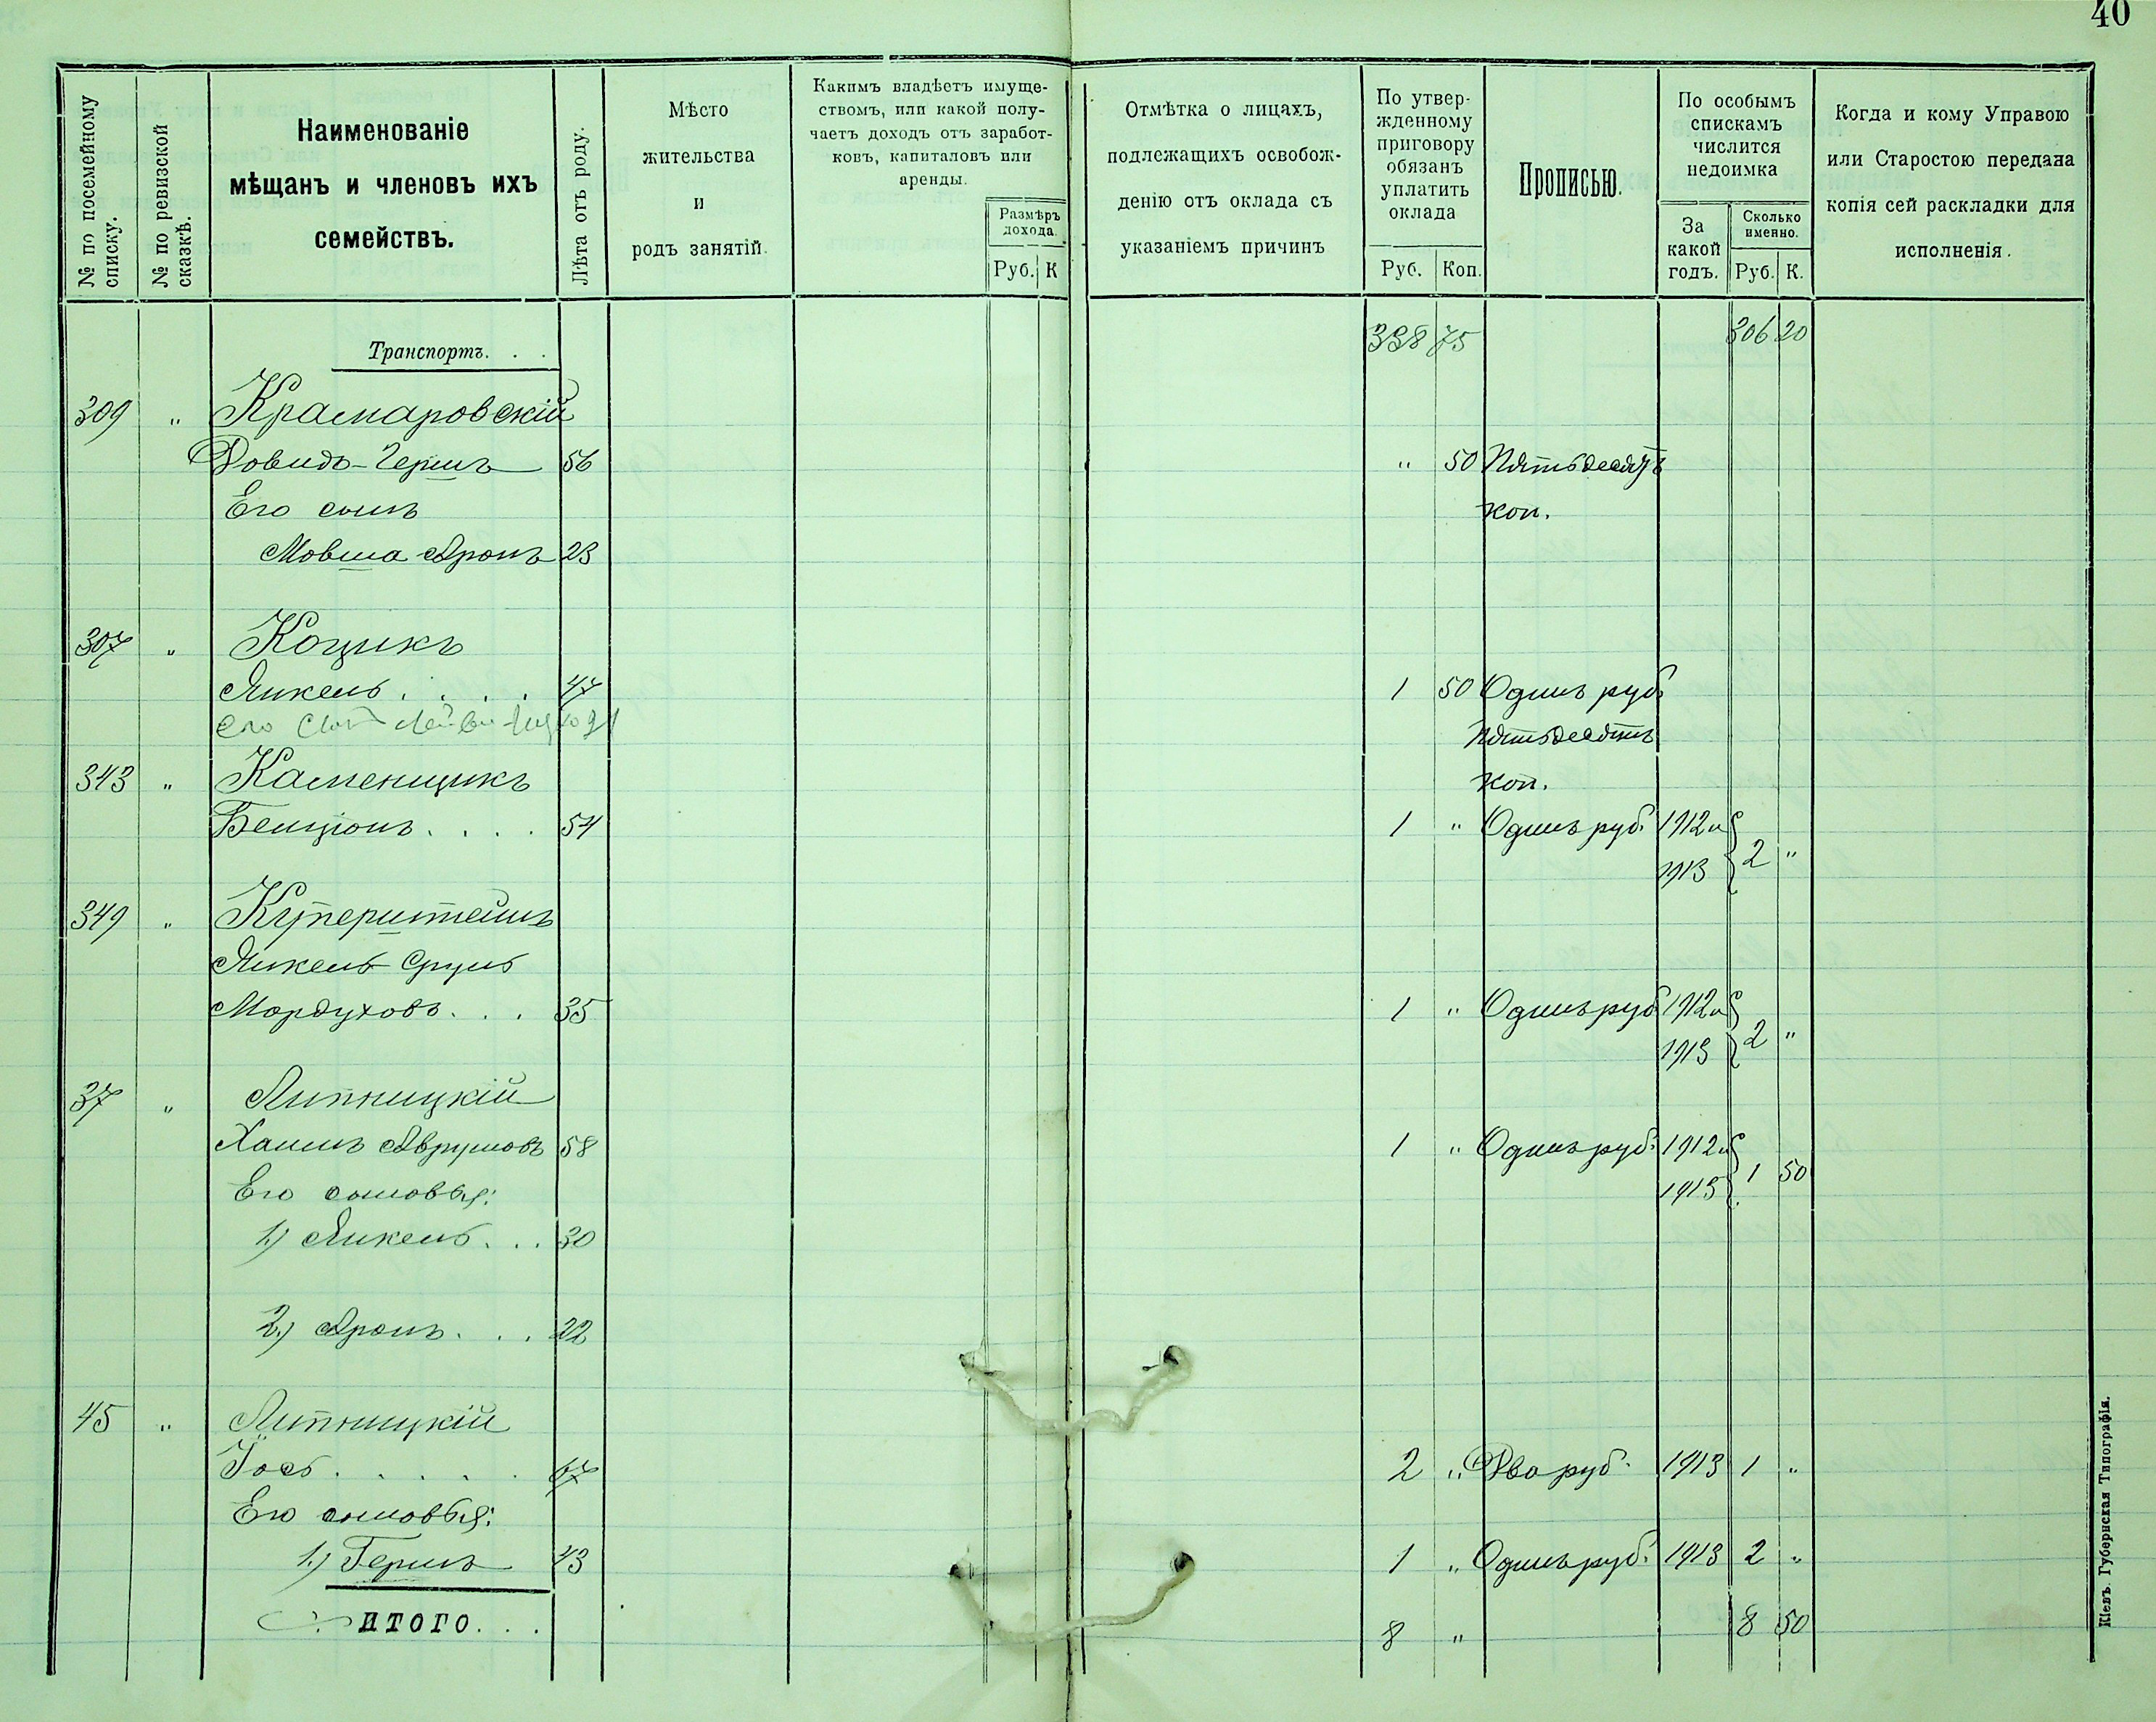 40
№ по посемейному списку.
№ по ревизской сказкѣ.
Наименованіе
мѣщанъ и членовъ ихъ
семействъ.
Лѣта отъ роду.
Мѣсто
жительства
и
родъ занятій.
Какимъ владѣетъ имуще-
ствомъ, или какой полу-
чаетъ доходъ отъ заработ-
ковъ, капиталовъ или
аренды.
Размѣръ
дохода.
Руб. К
Отмѣтка о лицахъ,
подлежащихъ освобож-
денію отъ оклада съ
указаніемъ причинъ
По утвер-
жденному
приговору
обязанъ
уплатить
оклада
Руб. Коп.
Прописью.
По особымъ
спискамъ
числится
недоимка
За
какой
годъ.
Сколько
именно.
Руб. К.
Когда и кому Управою
или Старостою передана
копія сей раскладки для
исполненія.
Транспортъ. . . 338 75 306 20
309 " Крамаровскій
Довидъ-Гершъ 56 " 50 Пятьдесятъ
Его сынъ коп.
Мовша Аронъ 23
307 " Коцикъ
Янкель . . . . 47 1 50 Одинъ руб.
его сынъ Пятьдесятъ
343 " Каменщикъ коп.
Бенціонъ . . . . 54 1 " Одинъ руб. 1912 и
1913 2 "
349 " Куперштейнъ
Янкель Сруль
Мордуховъ . . . 35 1 " Одинъ руб. 1912 и
1913 2 "
37 " Липницкій
Хаимъ Аврумовъ 58 1 " Одинъ руб. 1912 и
Его сыновья: 1913 1 50
1.) Янкель . . . 30
2.) Аронъ . . . 22
45 " Липницкій
Іось . . . . . 67 2 " Два руб. 1913 1 "
Его сыновья:
1.) Гершъ 43 1 " Одинъ руб. 1913 2 "
ИТОГО. . . 8 " 8 50
Кіевъ. Губернская Типографія.